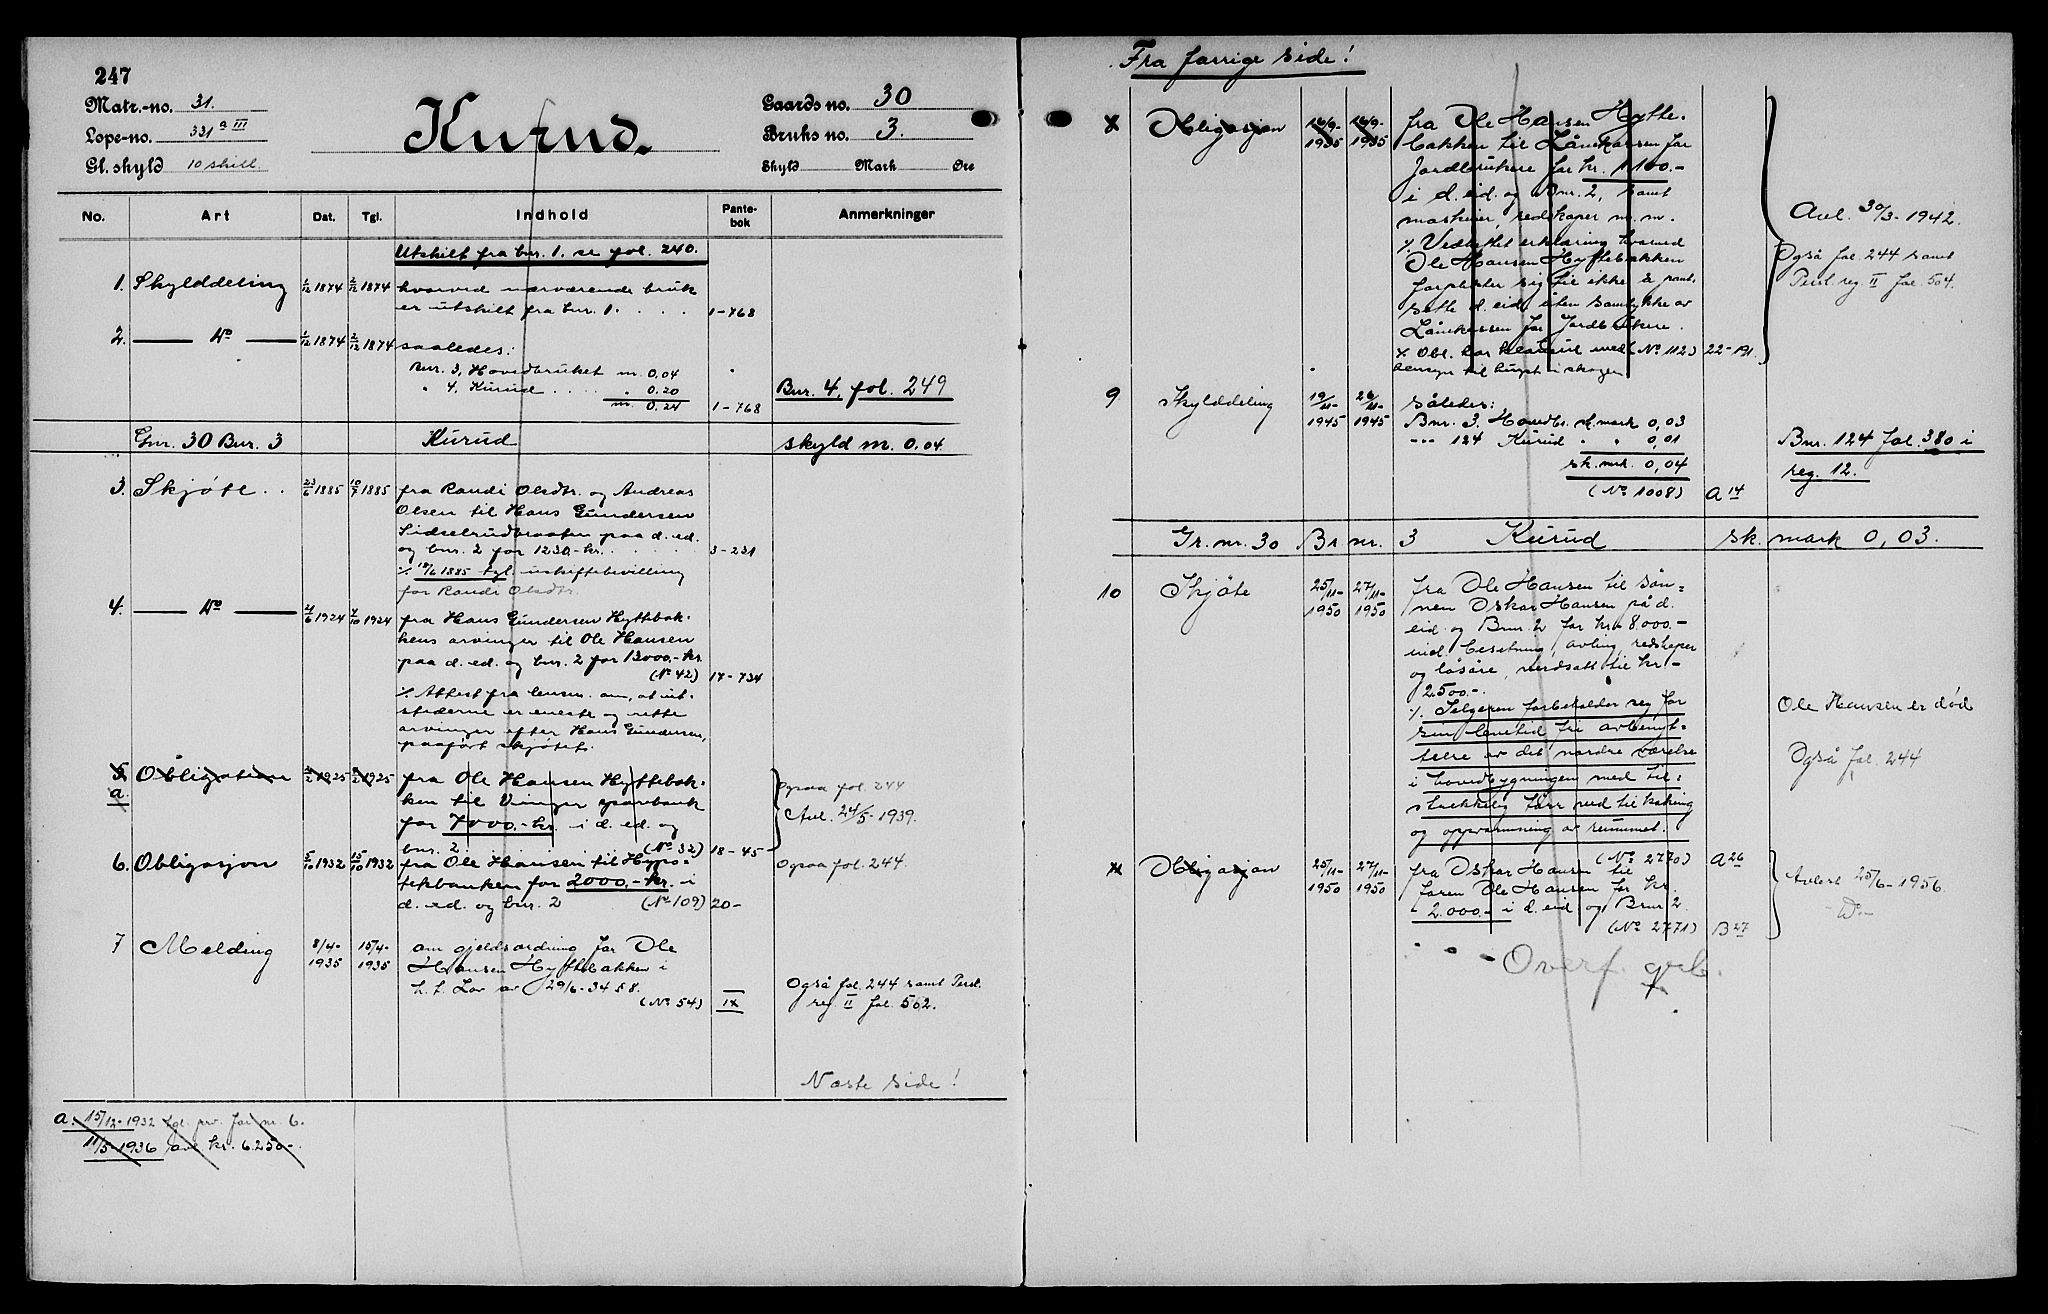 247
Matr.-no. 31.
Løpe-no. 331 a III
Gl. skyld 10 skill.
Kurud.
Gaards no. 30
Bruks no. 3.
Skyld Mark Øre
No. Art Dat. Tgl. Indhold Pante-bok Anmerkninger
Utskilt fra bnr. 1. se fol. 240.
1. Skylddeling 1/12 1874 2/12 1874 hvorved nærværende bruk
er utskilt fra bnr. 1. . . . . 1-768
2. — Do — 1/12 1874 2/12 1874 saaledes:
Bnr. 3, Hovedbruket m. 0,04
" 4, Kurud . . . . . 0.20 Bnr. 4, fol. 249
m. 0,24 1-768
Gnr. 30 Bnr. 3 Kurud skyld m. 0,04
3. Skjøte . . 23/6 1885 10/7 1885 fra Randi Olsdtr. og Andreas
Olsen til Hans Gundersen
Sidselrudbraaten paa d. ed.
og bnr. 2 for 1230,- kr. . . . . . 3-231
./. 18/6 1885 kgl. uskiftebevilling
for Randi Olsdtr.
4. — Do — 1924 1924 fra Hans Gundersen Hyttebak-
kens arvinger til Ole Hansen
paa d. ed. og bnr. 2 for 13000,- kr.
(No 42) 17-734
./. Attest fra lensm. om, at ut-
stederne er eneste og rette
arvinger efter Hans Gundersen,
paaført skjøtet.
5. Obligation 1925 1925 fra Ole Hansen Hyttebak- Ogsaa fol. 244
a. ken til Vinger sparebank Avl. 24/5-1939.
for 7000.- kr. i d. ed. og
bnr. 2 (No 32) 18-45
6. Obligasjon 5/10 1932 15/10 1932 fra Ole Hansen til Hypo- Ogsaa fol. 244.
tekbanken for 2000,- kr. i
d. ed. og bnr. 2 (No 109) 20-
7 Melding 8/4- 1935 15/4- 1935 om gjeldsordning for Ole
Hansen Hyttebakken i
h. t. Lov av 29/6-34 § 8. Også fol. 244 samt Persl.
(No 54) IX reg. II fol. 502.
Næste side!
a. 15/12-1932 fgl. prv. for nr. 6.
11/5-1936 avl kr. 6250-
Fra forrige side!
Obligasjon 16/9- 1935 16/9- 1935 fra Ole Hansen Hytte-
bakken til Lånekassen for
Jordbrukere for kr. 1100.-
i d. eid. og Bnr. 2, samt
maskiner, redskaper m. m. Avl. 30/3-1942.
./. Vedheftet erklæring hvorved
Ole Hansen Hyttebakken Også fol. 244 samt
forplikter sig til ikke å pant- Persl. reg. II fol. 504.
sette d. eid. uten samtykke av
Lånekassen for Jordbrukere.
./. Obl. har klausul med (No 112) 22-191.
hensyn til hugst i skogen
9 Skylddeling 19/11- 1945 26/11- 1945 således:
Bnr. 3. Hovedbr. sk. mark 0,03
" 124 Kurud " " 0,01 Bnr. 124 fol. 380 i
sk. mrk. 0,04 reg. 12.
(No 1008) A 14
Gr. nr. 30 Br nr. 3 Kurud sk. mark 0,03.
10 Skjøte 25/11- 1950 27/11- 1950 fra Ole Hansen til søn-
nen Oskar Hansen på d.
eid. og Bnr. 2 for kr. 8000.-
inkl. besetning, avling, redskaper
og løsøre, verdsatt til kr.-
2500.-
./. Selgeren forbeholder seg for Ole Hansen er død
sin levetid fri avbenyt-
telse av det nordre værelse
i hovedbygningen med til- Også fol. 244
strekkelig tørr ved til koking
og oppvarmning av rummet.
(No 2770) A 26
Obligasjon 25/11- 1950 27/11- 1950 fra Oskar Hansen til
faren Ole Hansen for kr. Avlest 25/6-1956.
2.000.- i d. eid. og Bnr. 2 -Do-
(No 2771) B 47
Overf.